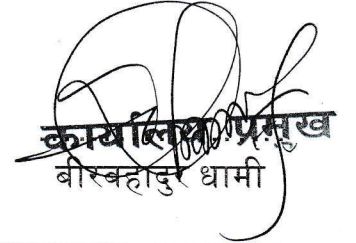 कार्यालय प्रमुख
बीरबहादुर धामी